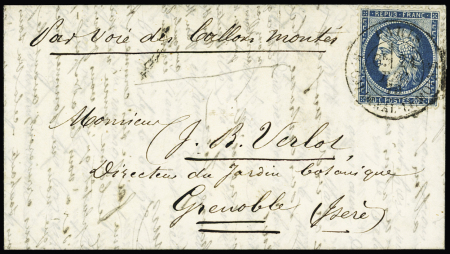 Par Voie des Ballons montés
REPUB. FRANC.
POSTES
Monsieur
J. B. Verlot
Directeur du Jardin botanique
Grenoble (Isère)